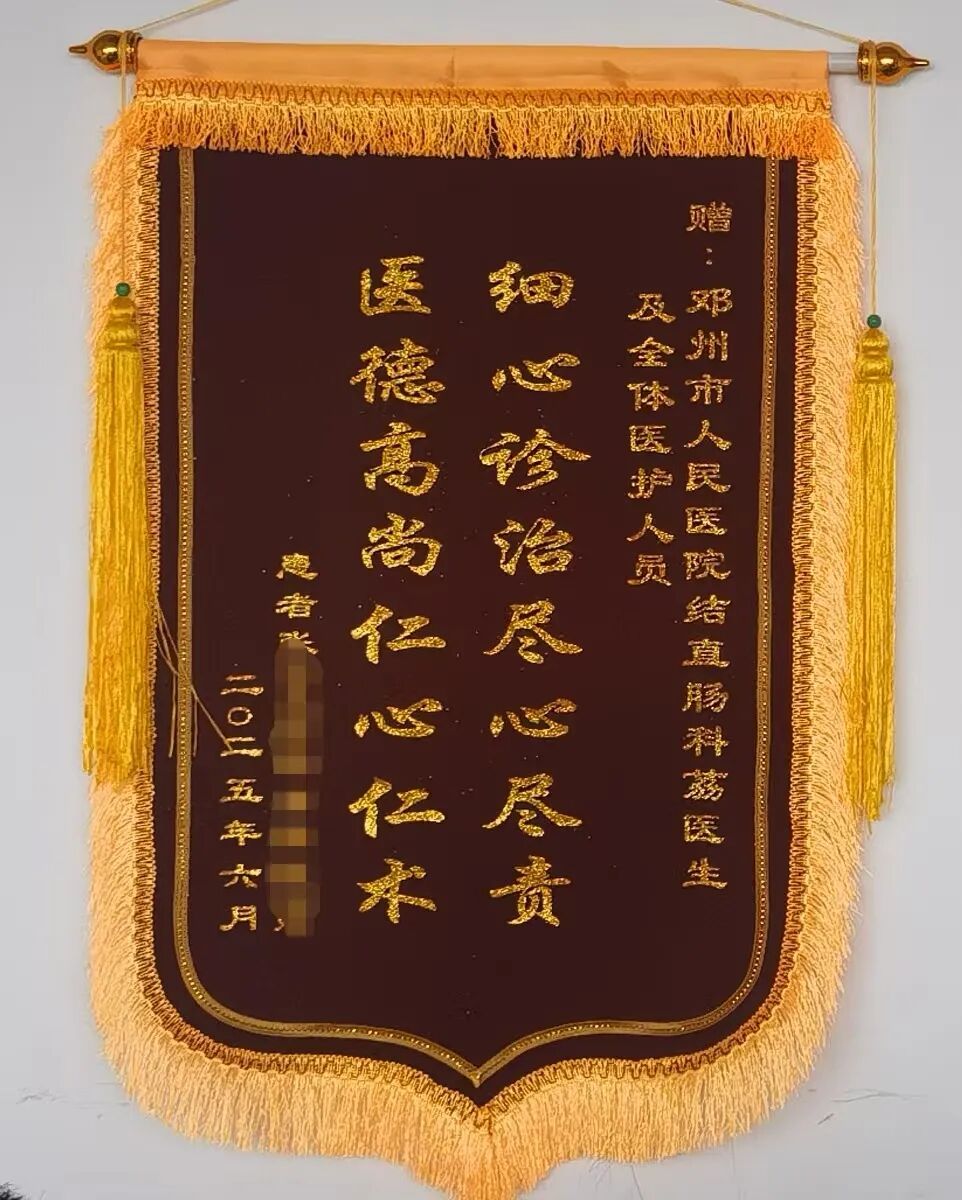 赠：邓州市人民医院结直肠科荔医生
及全体医护人员
细心诊治尽心尽责
医德高尚仁心仁术
患者张
二〇二五年六月